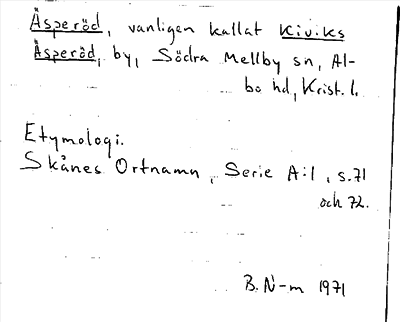 Äsperöd, vanligen kallat Kiviks
Äsperöd, by, Södra Mellby sn, Al-
bo hd, Krist. l.
Etymologi.
Skånes Ortnamn, Serie A:1, s. 71
och 72.
B. N-m 1971